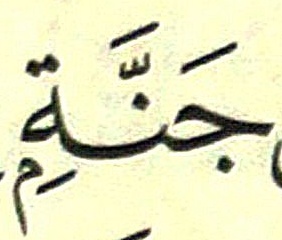 جَنَّةِۭ